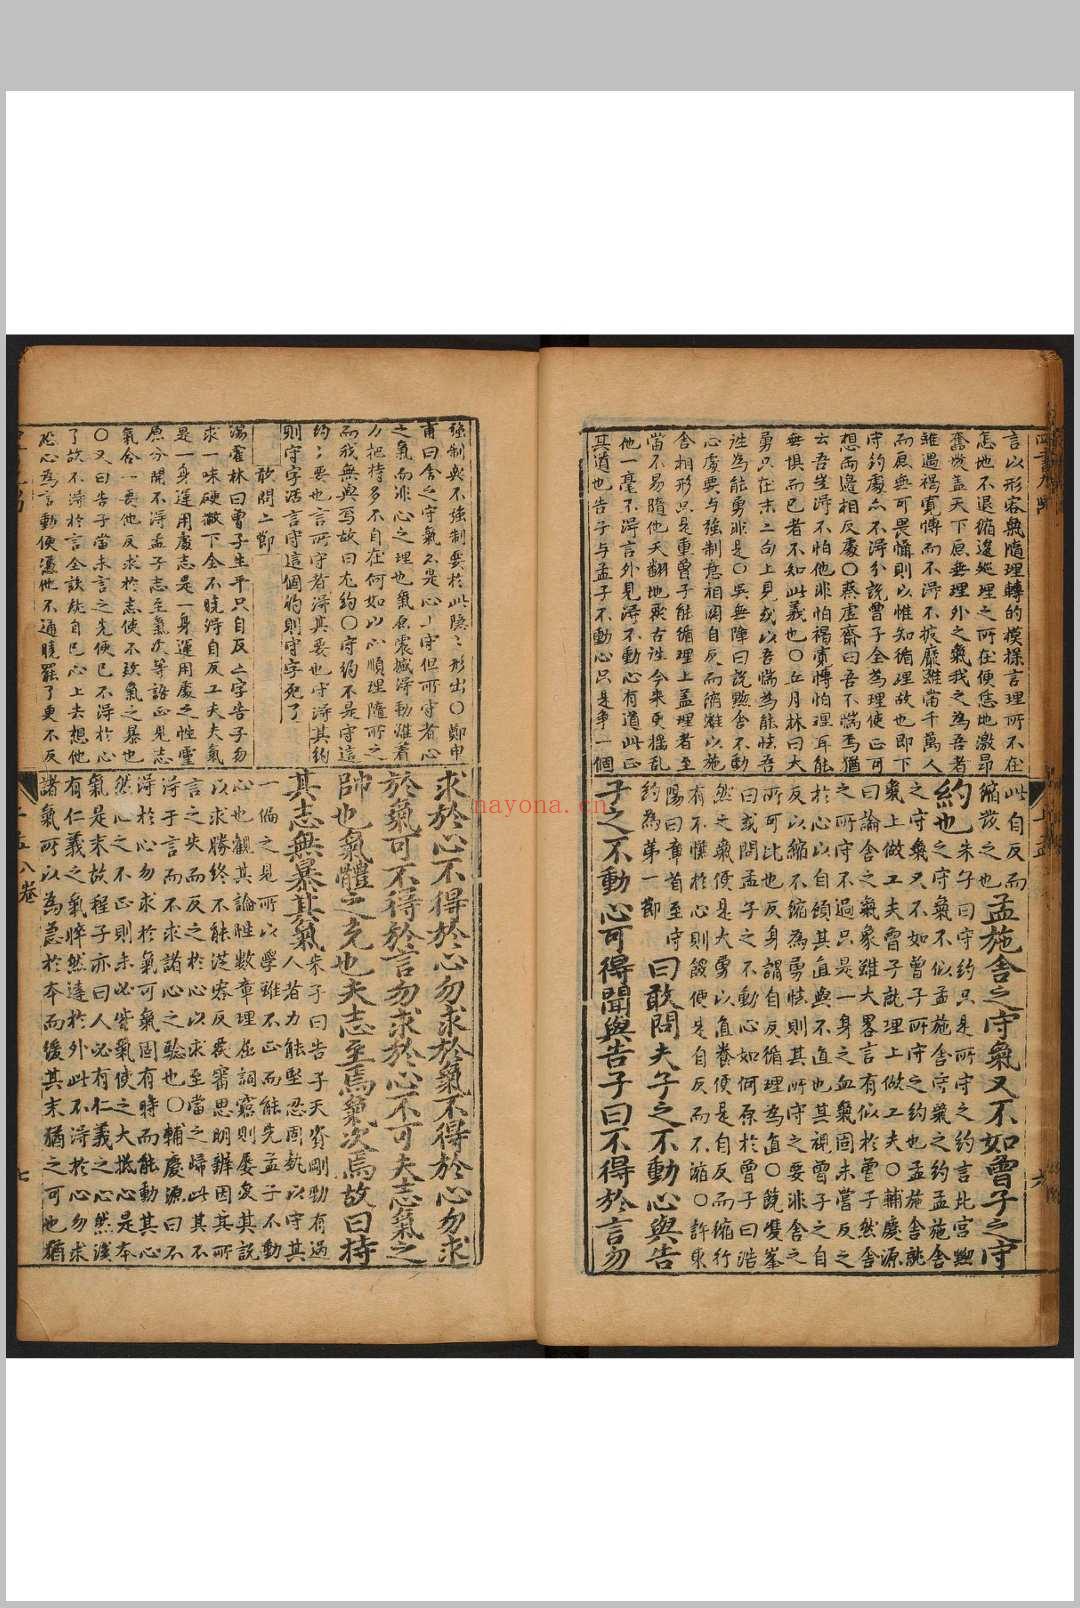 言以形容氣隨理轉的模樣言理所不在
怎地不退縮違逆理之所在便恁地激昂
奮發蓋天下原無理外之氣我之為吾者
雖遇褐寬博而不淂不披靡雖當千萬人
而原無可畏懼則以惟知循理故也即下
守約處亦不淂分說曾子全為理使正可
想兩邊相反處○蔡虛齋曰吾不惴焉猶
云吾豈淂不怕他非怕褐寬博怕理耳能
無懼而已者不知此義也○丘月林曰大
勇只在末二句上見或以吾惴為能怯吾
往為能勇非是○吳無障曰說黝舍不動
心處要與強制意相関自反而縮雖以施
舍相形只是重曾子能循理上蓋理者至
當不易隨他天翻地裂古往今來更搖亂
他一毫不淂言外見淂不動心有道此正
其道也告子与孟子不動心只是争一個
此自反而
縮說之也
孟施舍之守氣又不如曾子之守
約也
朱子曰守約只是所守之約言北宮黝
之守氣不似孟施舍守氣之約孟施舍
之守氣又不如曾子所守之約也孟施舍就
氣上做工夫曾子就理上做工夫○輔慶源
曰論舍之氣象雖大畧言有似於曾子然舍
之所守不過只是一身之血氣固未嘗反之
於心以自顧其直與不直也其視曾子之自
反以縮不縮為勇怯則其所守之要非舍之
所可比也反身謂自反循理為直○饒雙峯
曰或問孟子之不動心如何原於曾子曰浩
然之氣便是大勇以直養便是自反而縮行
有不慊於心則餒便是自反而不縮○許東
陽曰章首至守
約為第一節
曰敢問夫子之不動心與告
子之不動心可得聞與告子曰不得於言勿
強制與不強制要於此隠〻形出○鄭申
甫曰舍之守氣不是心上守但所守者心
之氣而非心之理也氣原震撼淂動雖着
力把持多不自在何如以心順理隨所之
而我無與焉故曰尤約○守約不是守這
約〻要也言所守者淂其要也守淂其約
則守字活言守這個約則守字死了
敢問二節
湯霍林曰曾子生平只自反二字告子勿
求一味硬徹下全不曉淂自反工夫夫氣
是一身運用處志是一身運用處之性靈
原分開不淂孟子志至氣次等語正見志
氣合一喪他反求於志使不致氣之暴也
○又曰告子當未言之先便已不淂於心
了故不淂於言全該就自己心上去想他
恐心為言動便慿他不通曉罷了更不反
求於心不得於心勿求於氣不得於心勿求
於氣可不得於言勿求於心不可夫志氣之
帥也氣體之充也夫志至焉氣次焉故曰持
其志無暴其氣
朱子曰告子天資剛勁有過
人者力能堅忍固執以守其
一偏之見所以學雖不正而能先孟子不動
心也觀其論性數章理屈詞窮則屡變其說
以求勝終不能從容反覆審思明辨因其所
言之失而反之於心以求至當之歸此其不
淂于言而不求諸心之驗也○輔慶源曰不
淂於心勿求於氣可氣固有時而能動其心
然心之不正則未必皆氣使之大抵心是本
氣是末故程子亦曰人必有仁義之心然後
有仁義之氣睟然達於外此不淂於心勿求
諸氣所以為急於本而後其末猶之可也猶
上孟
六
上孟
八卷
七
nayona.cn